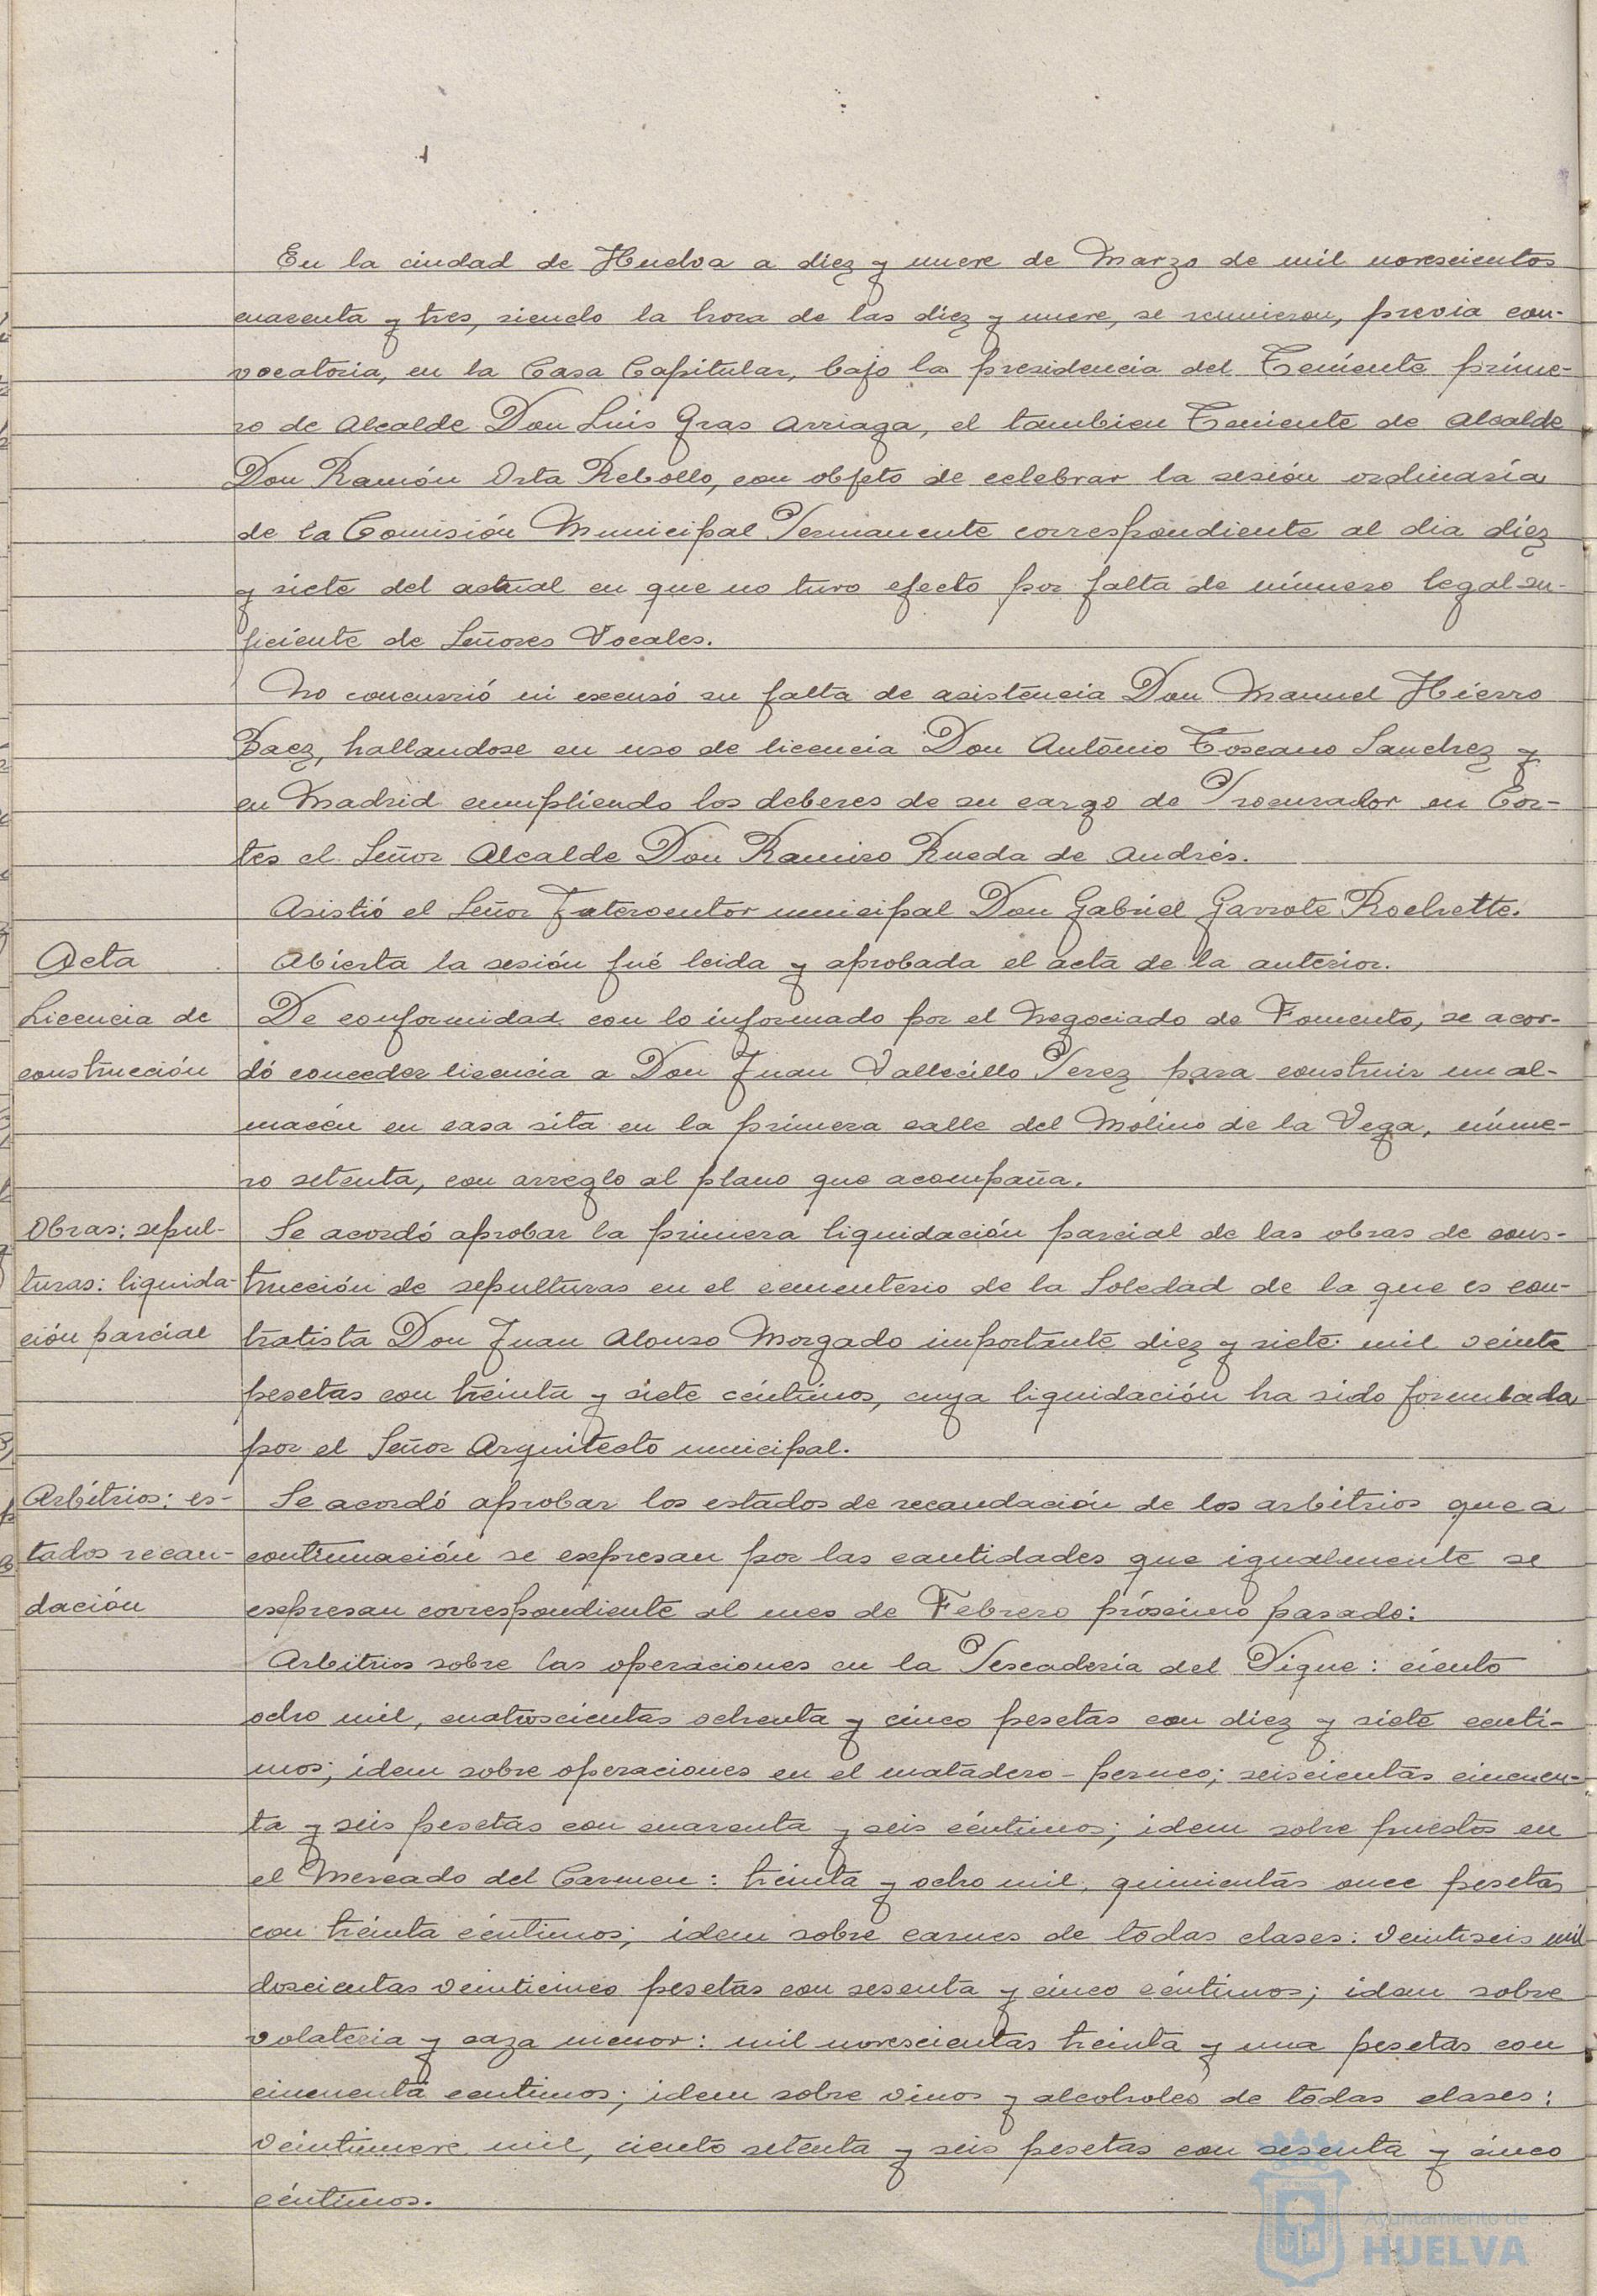 En la ciudad de Huelva a diez y nueve de Marzo de mil novescientos
cuarenta y tres, siendo la hora de las diez y nueve, se reunieron, previa con-
vocatoria, en la Casa Capitular, bajo la presidencia del Teniente prime-
ro de Alcalde Don Luis Gras Arriaga, el tambien Teniente de Alcalde
Don Ramón Orta Rebollo, con objeto de celebrar la sesión ordinaria
de la Comisión Municipal Permanente correspondiente al dia diez
y siete del actual en que no tuvo efecto por falta de número legal su-
ficiente de Señores Vocales.
No concurrió ni excusó su falta de asistencia Don Manuel Hierro
Baez, hallandose en uso de licencia Don Antonio Toscano Sanchez y
en Madrid cumpliendo los deberes de su cargo de Procurador en Cor-
tes el Señor Alcalde Don Ramiro Rueda de Andrés.
Asistió el Señor Interventor municipal Don Gabriel Garrote Rochette.
Acta
Abierta la sesión fué leida y aprobada el acta de la anterior.
Licencia de
construcción
De conformidad con lo informado por el Negociado de Fomento, se acor-
dó conceder licencia a Don Juan Vallecillo Perez para construir un al-
macén en casa sita en la primera calle del Molino de la Vega, núme-
ro setenta, con arreglo al plano que acompaña.
Obras: sepul-
turas: liquida-
ción parcial
Se acordó aprobar la primera liquidación parcial de las obras de cons-
trucción de sepulturas en el cementerio de la Soledad de la que es con-
tratista Don Juan Alonso Morgado importante diez y siete mil veinte
pesetas con treinta y siete céntimos, cuya liquidación ha sido formulada
por el Señor Arquitecto municipal.
Arbitrios: es-
tados recau-
dación
Se acordó aprobar los estados de recaudación de los arbitrios que a
continuación se expresan por las cantidades que igualmente se
expresan correspondiente al mes de Febrero próximo pasado:
Arbitrios sobre las operaciones en la Pescadería del Dique: ciento
ocho mil, cuatroscientas ochenta y cinco pesetas con diez y siete centi-
mos; idem sobre operaciones en el matadero-perneo; seiscientas cincuen-
ta y seis pesetas con cuarenta y seis céntimos; idem sobre puestos en
el Mercado del Carmen: treinta y ocho mil, quinientas once pesetas
con treinta céntimos; idem sobre carnes de todas clases: veintiseis mil
doscientas veinticinco pesetas con sesenta y cinco céntimos; idem sobre
volateria y caza menor: mil novescientas treinta y una pesetas con
cincuenta centimos; idem sobre vinos y alcoholes de todas clases:
veintinueve mil, ciento setenta y seis pesetas con sesenta y cinco
céntimos.
Ayuntamiento de
HUELVA